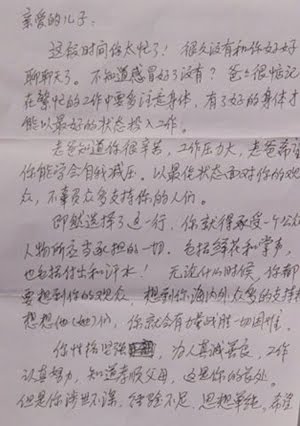 亲爱的儿子:
这段时间你太忙了! 很久没有和你好好
聊聊天了。不知道感冒好了没有? 爸爸很惦记
在繁忙的工作中要多注意身体, 有了好的身体才
能以最好的状态投入工作。
老爸知道你很辛苦, 工作压力大, 老爸希望
你能学会自我减压。以最佳状态面对你的观
众, 不辜负众多支持你的人们。
即然选择了这一行, 你就得承受一个公众
人物所应当承担的一切。包括鲜花和掌声,
也包括付出和汗水! 无论什么时候, 你都
要想到你的观众, 想到你海内外众多的支持者
想想他(她)们, 你就会有力量战胜一切困难。
你性格坚强, 为人真诚善良, 工作
认真努力, 知道孝顺父母, 这是你的长处。
但是你涉世不深, 经验不足, 思想单纯, 希望